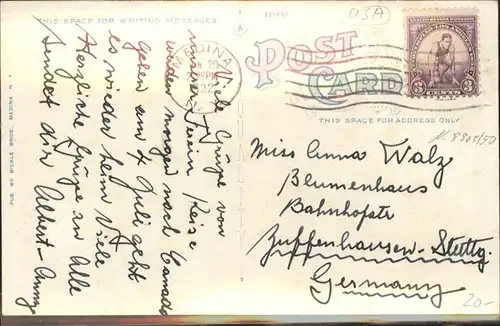 THIS SPACE FOR WRITING MESSAGES
Viele Grüße von
unserer Verein Reise
werden morgen nach Canada
gehen am 4 Juli geht
es wieder heim Viele
Herzliche Grüße an Alle
sendet dir Albert - Anny
PUB. BY BICKLE BROS. MEDINA, N.Y.
MEDINA
PM
1932
POST
CARD
USA
3 CENTS 3
THIS SPACE FOR ADDRESS ONLY
Miss Anna Walz
Blumenhaus
Bahnhofstr
Zuffenhausen - Stuttg.
Germany
20.-